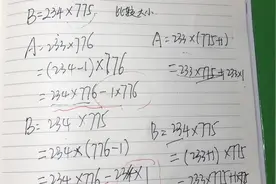 B=234×775 比较大小
A=233×776
=(234-1)×776
=234×776-1×776
B=234×775
=234×(776-1)
=234×776-234×1
A=233×(775+1)
=233×775+233×1
B=234×775
=(233+1)×775
=233×775+1×775